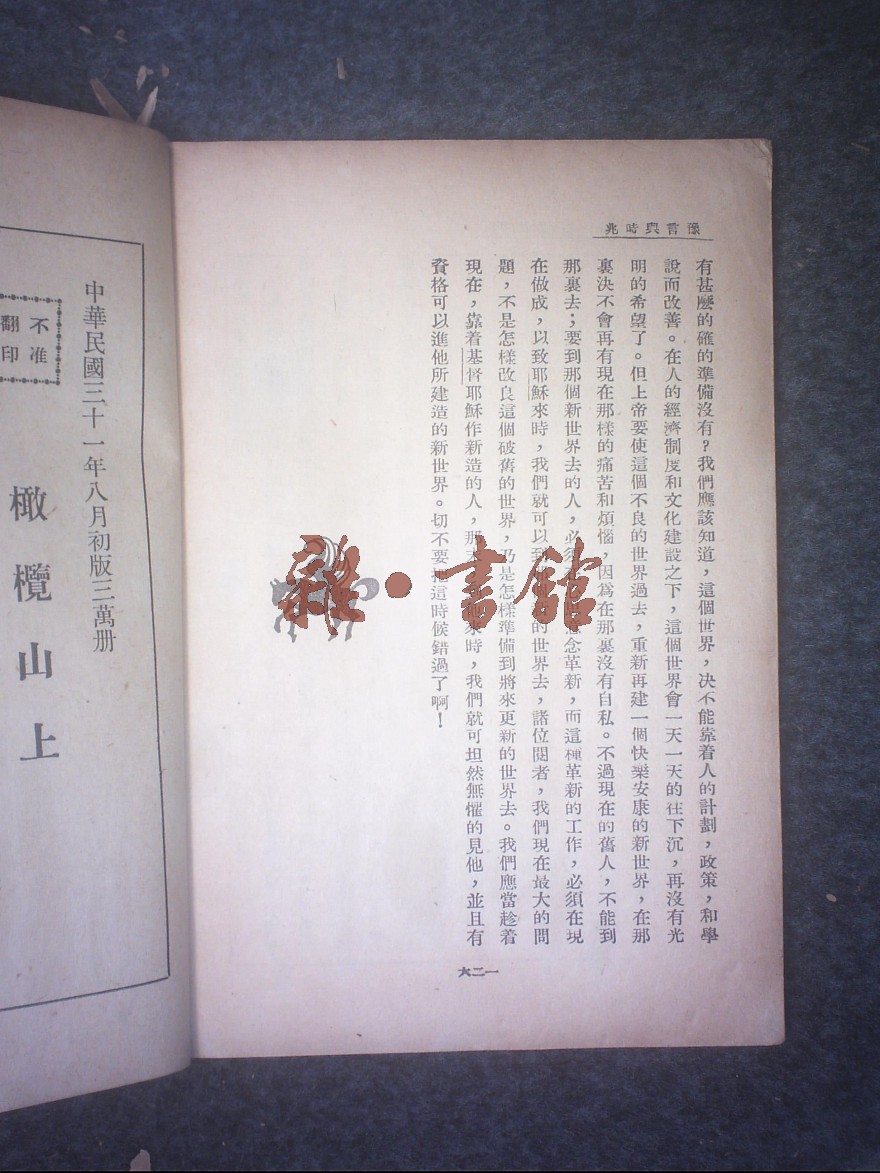 豫言與時兆
有甚麼的確的準備沒有？我們應該知道，這個世界，決不能靠着人的計劃，政策，和學
說而改善。在人的經濟制度和文化建設之下，這個世界會一天一天的往下沉，再沒有光
明的希望了。但上帝要使這個不良的世界過去，重新再建一個快樂安康的新世界，在那
裏決不會再有現在那樣的痛苦和煩惱，因爲在那裏沒有自私。不過現在的舊人，不能到
那裏去；要到那個新世界去的人，必須念革新，而這種革新的工作，必須在現
在做成，以致耶穌來時，我們就可以到的世界去，諸位閱者，我們現在最大的問
題，不是怎樣改良這個破舊的世界，乃是怎樣準備到將來更新的世界去。我們應當趁着
現在，靠着基督耶穌作新造的人，那來時，我們就可坦然無懼的見他，並且有
資格可以進他所建造的新世界。切不要把這時候錯過了啊！
一二六
雜·書館
不准
翻印
中華民國三十一年八月初版三萬册
橄欖山上